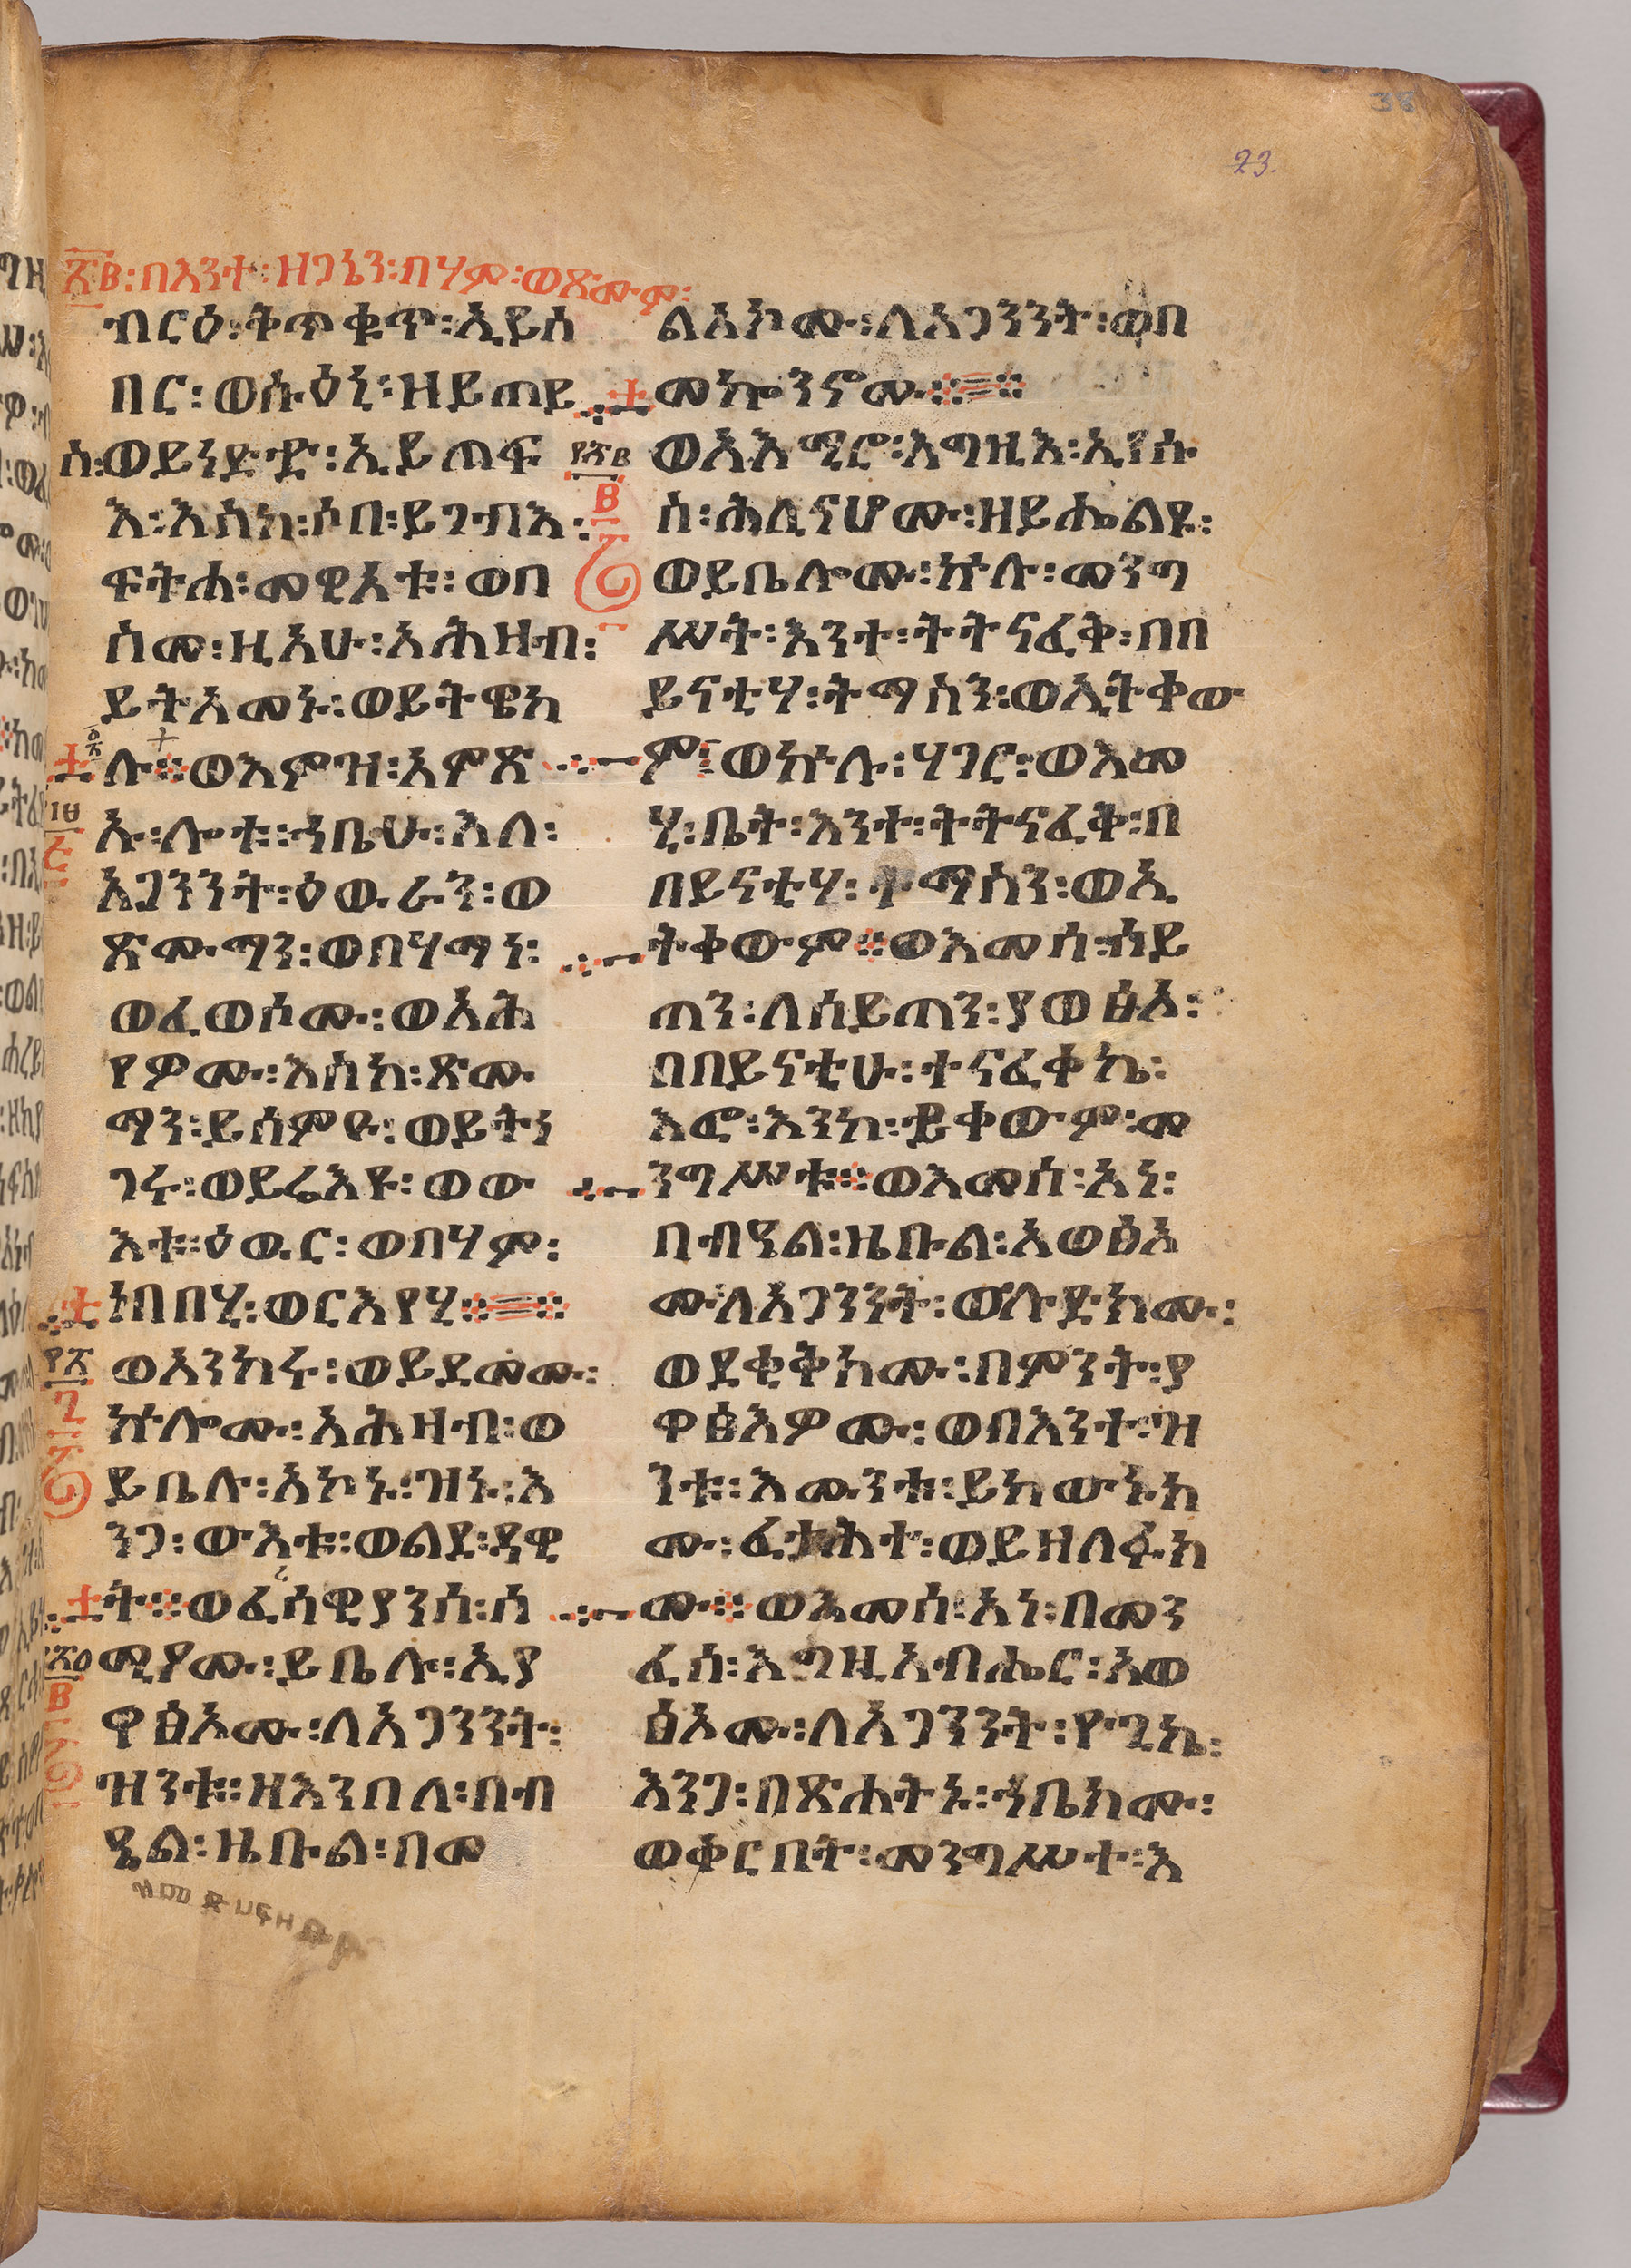 38
23.
፳፪፡በእንተ፡ዘጋኔን፡በሃም፡ወጽሙም፡
ብርዕ፡ቅጥቁጥ፡ኢይሰ
በር፡ወሱዕኒ፡ዘይጠይ
ስ፡ወይነድድ፡ኢይጠፍ
እ፡እስከ፡ሶበ፡ይገብእ፡
ፍትሐ፡መዊእቱ፡ወበ
ስመ፡ዚአሁ፡አሕዛብ፡
ይትአመኑ፡ወይትዌከ
ሉ።ወእምዝ፡አምጽ
ኡ፡ሎቱ፡ኀቤሁ፡እለ፡
አጋንንት፡ዕዉራን፡ወ
ጽሙማን፡ወበሃማነ፡
ወፈወሶሙ፡ወአሕ
የዎሙ፡እስከ፡ጽሙ
ማን፡ይሰምዑ፡ወይትነ
ገሩ፡ወይሬእዩ፡ወው
እቱ፡ዕዉር፡ወበሃም፡
ነበበሂ፡ወርእየሂ።
ወአንከሩ፡ወይደመሙ፡
ኵሎሙ፡አሕዛብ፡ወ
ይቤሉ፡አኮኑ፡ዝኑ፡እ
ንጋ፡ውእቱ፡ወልደ፡ዳዊ
ት።ወፈሪሳዊያንሰ፡ሰ
ሚዖሙ፡ይቤሉ፡ኢያ
ዋፅኦሙ፡ለአጋንንት፡
ዝንቱ፡ዘእንበለ፡በብ
ዔል፡ዜቡል፡በመ
ልአኮሙ፡ለአጋንንት፡ወበ
መኰንኖሙ።
ወአእሚሮ፡እግዚእ፡ኢየሱ
ስ፡ሕሊናሆሙ፡ዘይሔልዩ፡
ወይቤሎሙ፡ኵሉ፡መንግ
ሥት፡እንተ፡ትትናፈቅ፡በበ
ይናቲሃ፡ትማስን፡ወኢትቀው
ም፡ወኵሉ፡ሃገር፡ወእመ
ሂ፡ቤት፡እንተ፡ትትናፈቅ፡በ
በይናቲሃ፡ትማስን፡ወኢ
ትቀውም።ወእመሰ፡ሰይ
ጠን፡ለሰይጠን፡ያወፅእ፡
በበይናቲሁ፡ተናፈቀኬ፡
እፎ፡እንከ፡ይቀውም፡መ
ንግሥቱ።ወእመሰ፡አነ፡
በብዔል፡ዜቡል፡አወፅእ
ሙ፡ለአጋንንት፡ውሉድክሙ፡
ወደቂቅክሙ፡በምንት፡ያ
ዋፅእዎሙ፡ወበእንተ፡ዝ
ንቱ፡እሙንቱ፡ይከውኑክ
ሙ፡ፈታሕተ፡ወይዘለፉክ
ሙ።ወእመሰ፡አነ፡በመን
ፈሰ፡እግዚአብሔር፡አወ
ፅኦሙ፡ለአጋንንት፡ዮጊኬ፡
እንጋ፡በጽሐትኑ፡ኀቤክሙ፡
ወቀርበት፡መንግሥተ፡እ